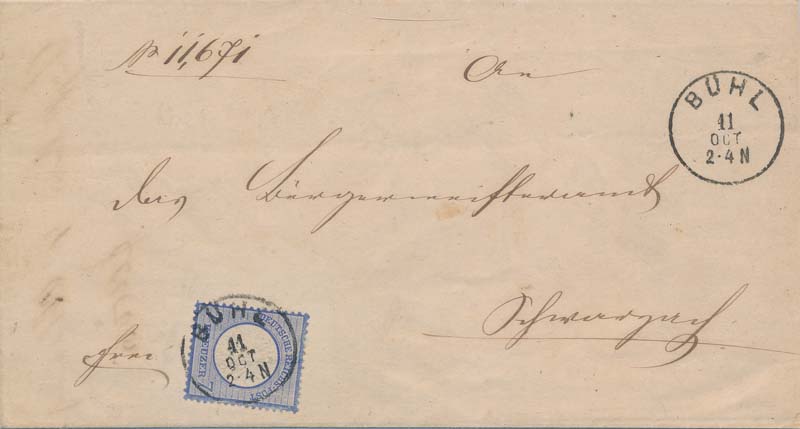 № 11,671
An
BÜHL
11
OCT
2-4 N
das Bürgermeisteramt
Schwarzach.
frei
BÜHL
11
OCT
2-4 N
DEUTSCHE REICHS-POST
1 KREUZER